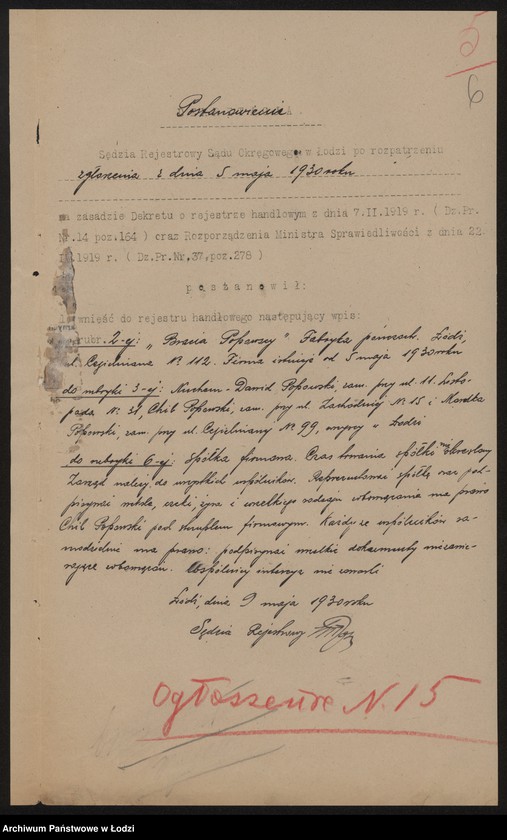 5
6
Postanowienie
Sędzia Rejestrowy Sądu Okręgowego w Łodzi po rozpatrzeniu
zgłoszenia z dnia 5 maja 1930 roku
na zasadzie Dekretu o rejestrze handlowym z dnia 7.II.1919 r. ( Dz.Pr.
Nr.14 poz.164 ) oraz Rozporządzenia Ministra Sprawiedliwości z dnia 22
1919 r. ( Dz.Pr.Nr.37,poz.278 )
postanowił:
wnieść do rejestru handlowego następujący wpis:
rubr. 2-ej: „Bracia Popowscy" Fabryka pończoch. Łódź,
ul. Cegielniana № 112. Firma istnieje od 5 maja 1930 roku
do rubryki 3-ej: Nuchem-Dawid Popowski, zam. przy ul. 11. Listo-
pada №, Chil Popowski, zam. przy ul. Zachodniej № 15 i
Popowski, zam. przy ul. Cegielnianej № 99, wszyscy w Łodzi
do rubryki 6-ej: Spółka firmowa. Czas trwania spółki nieokreślony
Zarząd należy do wszystkich wspólników. Reprezentować spółkę oraz pod-
pisywać weksle, czeki, żyra i wszelkiego rodzaju zobowiązania ma prawo
Chil Popowski pod stemplem firmowym. Każdy ze wspólników sa-
modzielnie ma prawo: podpisywać wszelkie dokumenty niezawie-
rające zobowiązań. Wspólnicy intercyz nie zawarli
Łódź, dnia 9 maja 1930 roku
Sędzia Rejestrowy
Ogłoszenie N. 15
Archiwum Państwowe w Łodzi